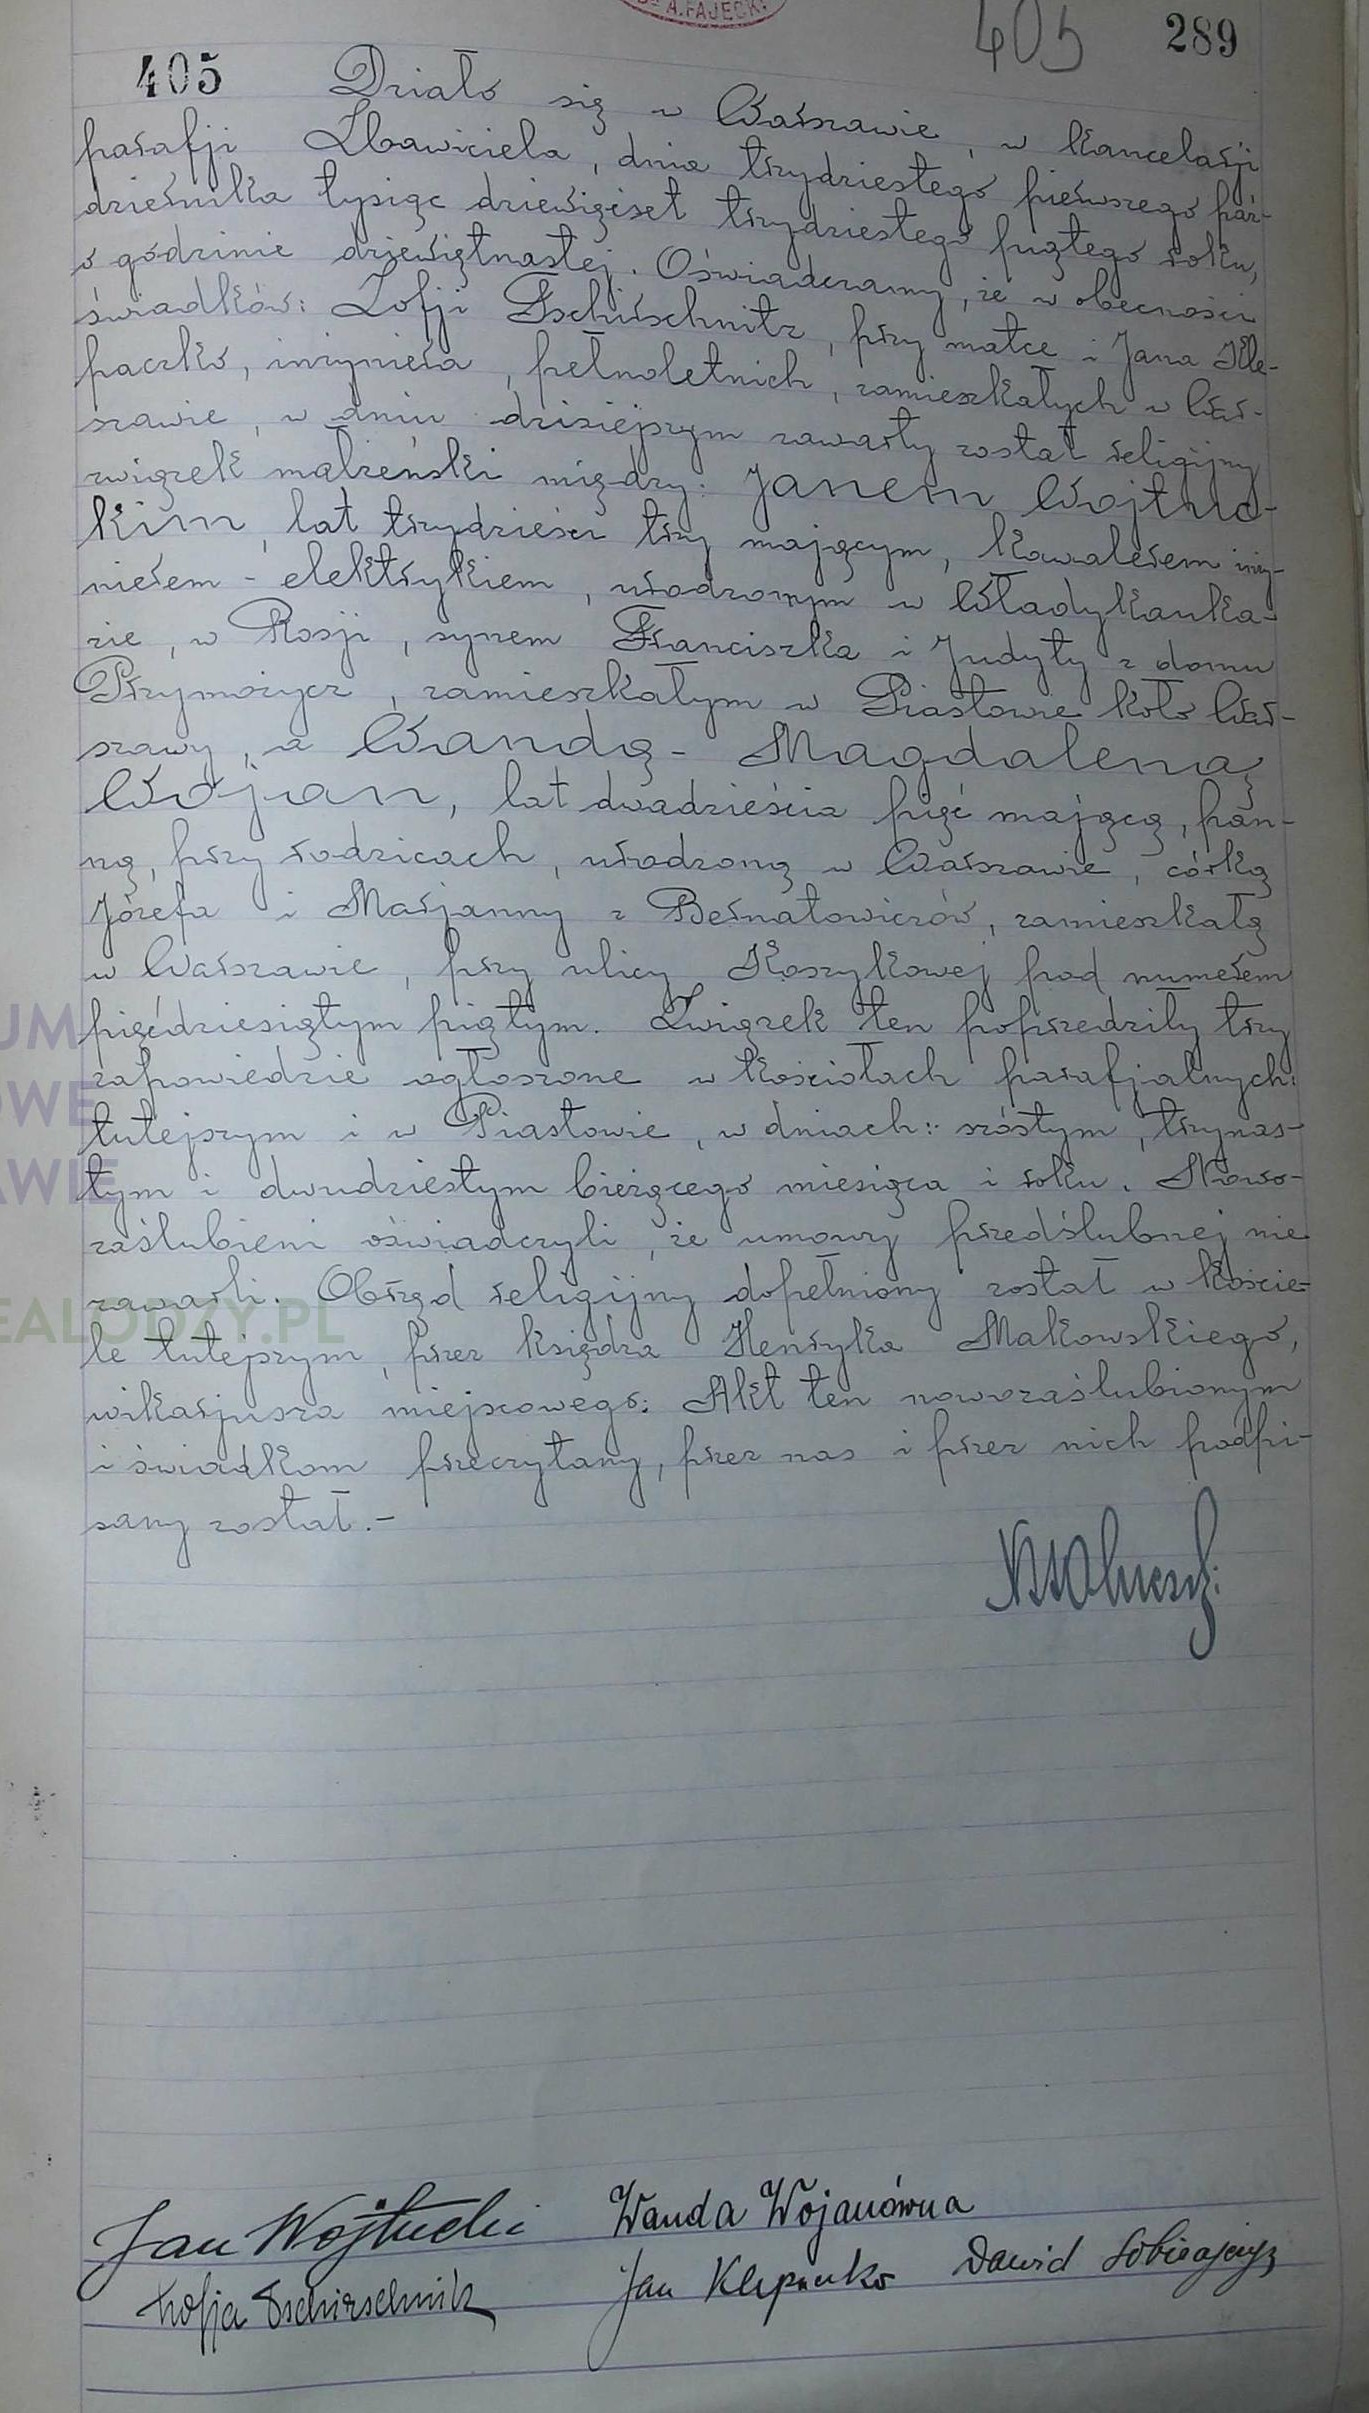 A. FAJĘCK
405 289
405 Działo się w Warszawie, w kancelarji
parafji Zbawiciela, dnia trzydziestego pierwszego paź-
dziernika tysiąc dziewięćset trzydziestego piątego roku,
o godzinie dziewiętnastej. Oświadczamy, że w obecności
świadków: Zofji Tschirschnitz, przy matce i Jana Kle-
paczko, inżyniera, pełnoletnich, zamieszkałych w War-
szawie, w dniu dzisiejszym zawarty został religijny
związek małżeński między: Janem Wojtuc-
kim, lat trzydzieści trzy mającym, kawalerem inży-
nierem - elektrykiem, urodzonym w Władykauka-
zie, w Rosji, synem Franciszka i Judyty z domu
Przymożycz, zamieszkałym w Piastowie koło War-
szawy, a Wandą - Magdaleną
Wojan, lat dwadzieścia pięć mającą, pan-
ną, przy rodzicach, urodzoną w Warszawie, córką
Józefa i Marjanny z Bernatowiczów, zamieszkałą
w Warszawie, przy ulicy Koszykowej pod numerem
pięćdziesiątym piątym. Związek ten poprzedziły trzy
zapowiedzie ogłoszone w kościołach parafjalnych:
tutejszym i w Piastowie, w dniach: szóstym, trzynas-
tym i dwudziestym bieżącego miesiąca i roku. Nowo-
zaślubieni oświadczyli, że umowy przedślubnej nie
zawarli. Obrzęd religijny dopełniony został w koście-
le tutejszym, przez księdza Henryka Makowskiego,
wikarjusza miejscowego. Akt ten nowozaślubionym
i świadkom przeczytany, przez nas i przez nich podpi-
sany został.-
Jan Wojtucki Wanda Wojanówna
Zofja Tschirschnitz Jan Klepaczko Dawid
UM
OWE
AWIE
EALODZY.PL